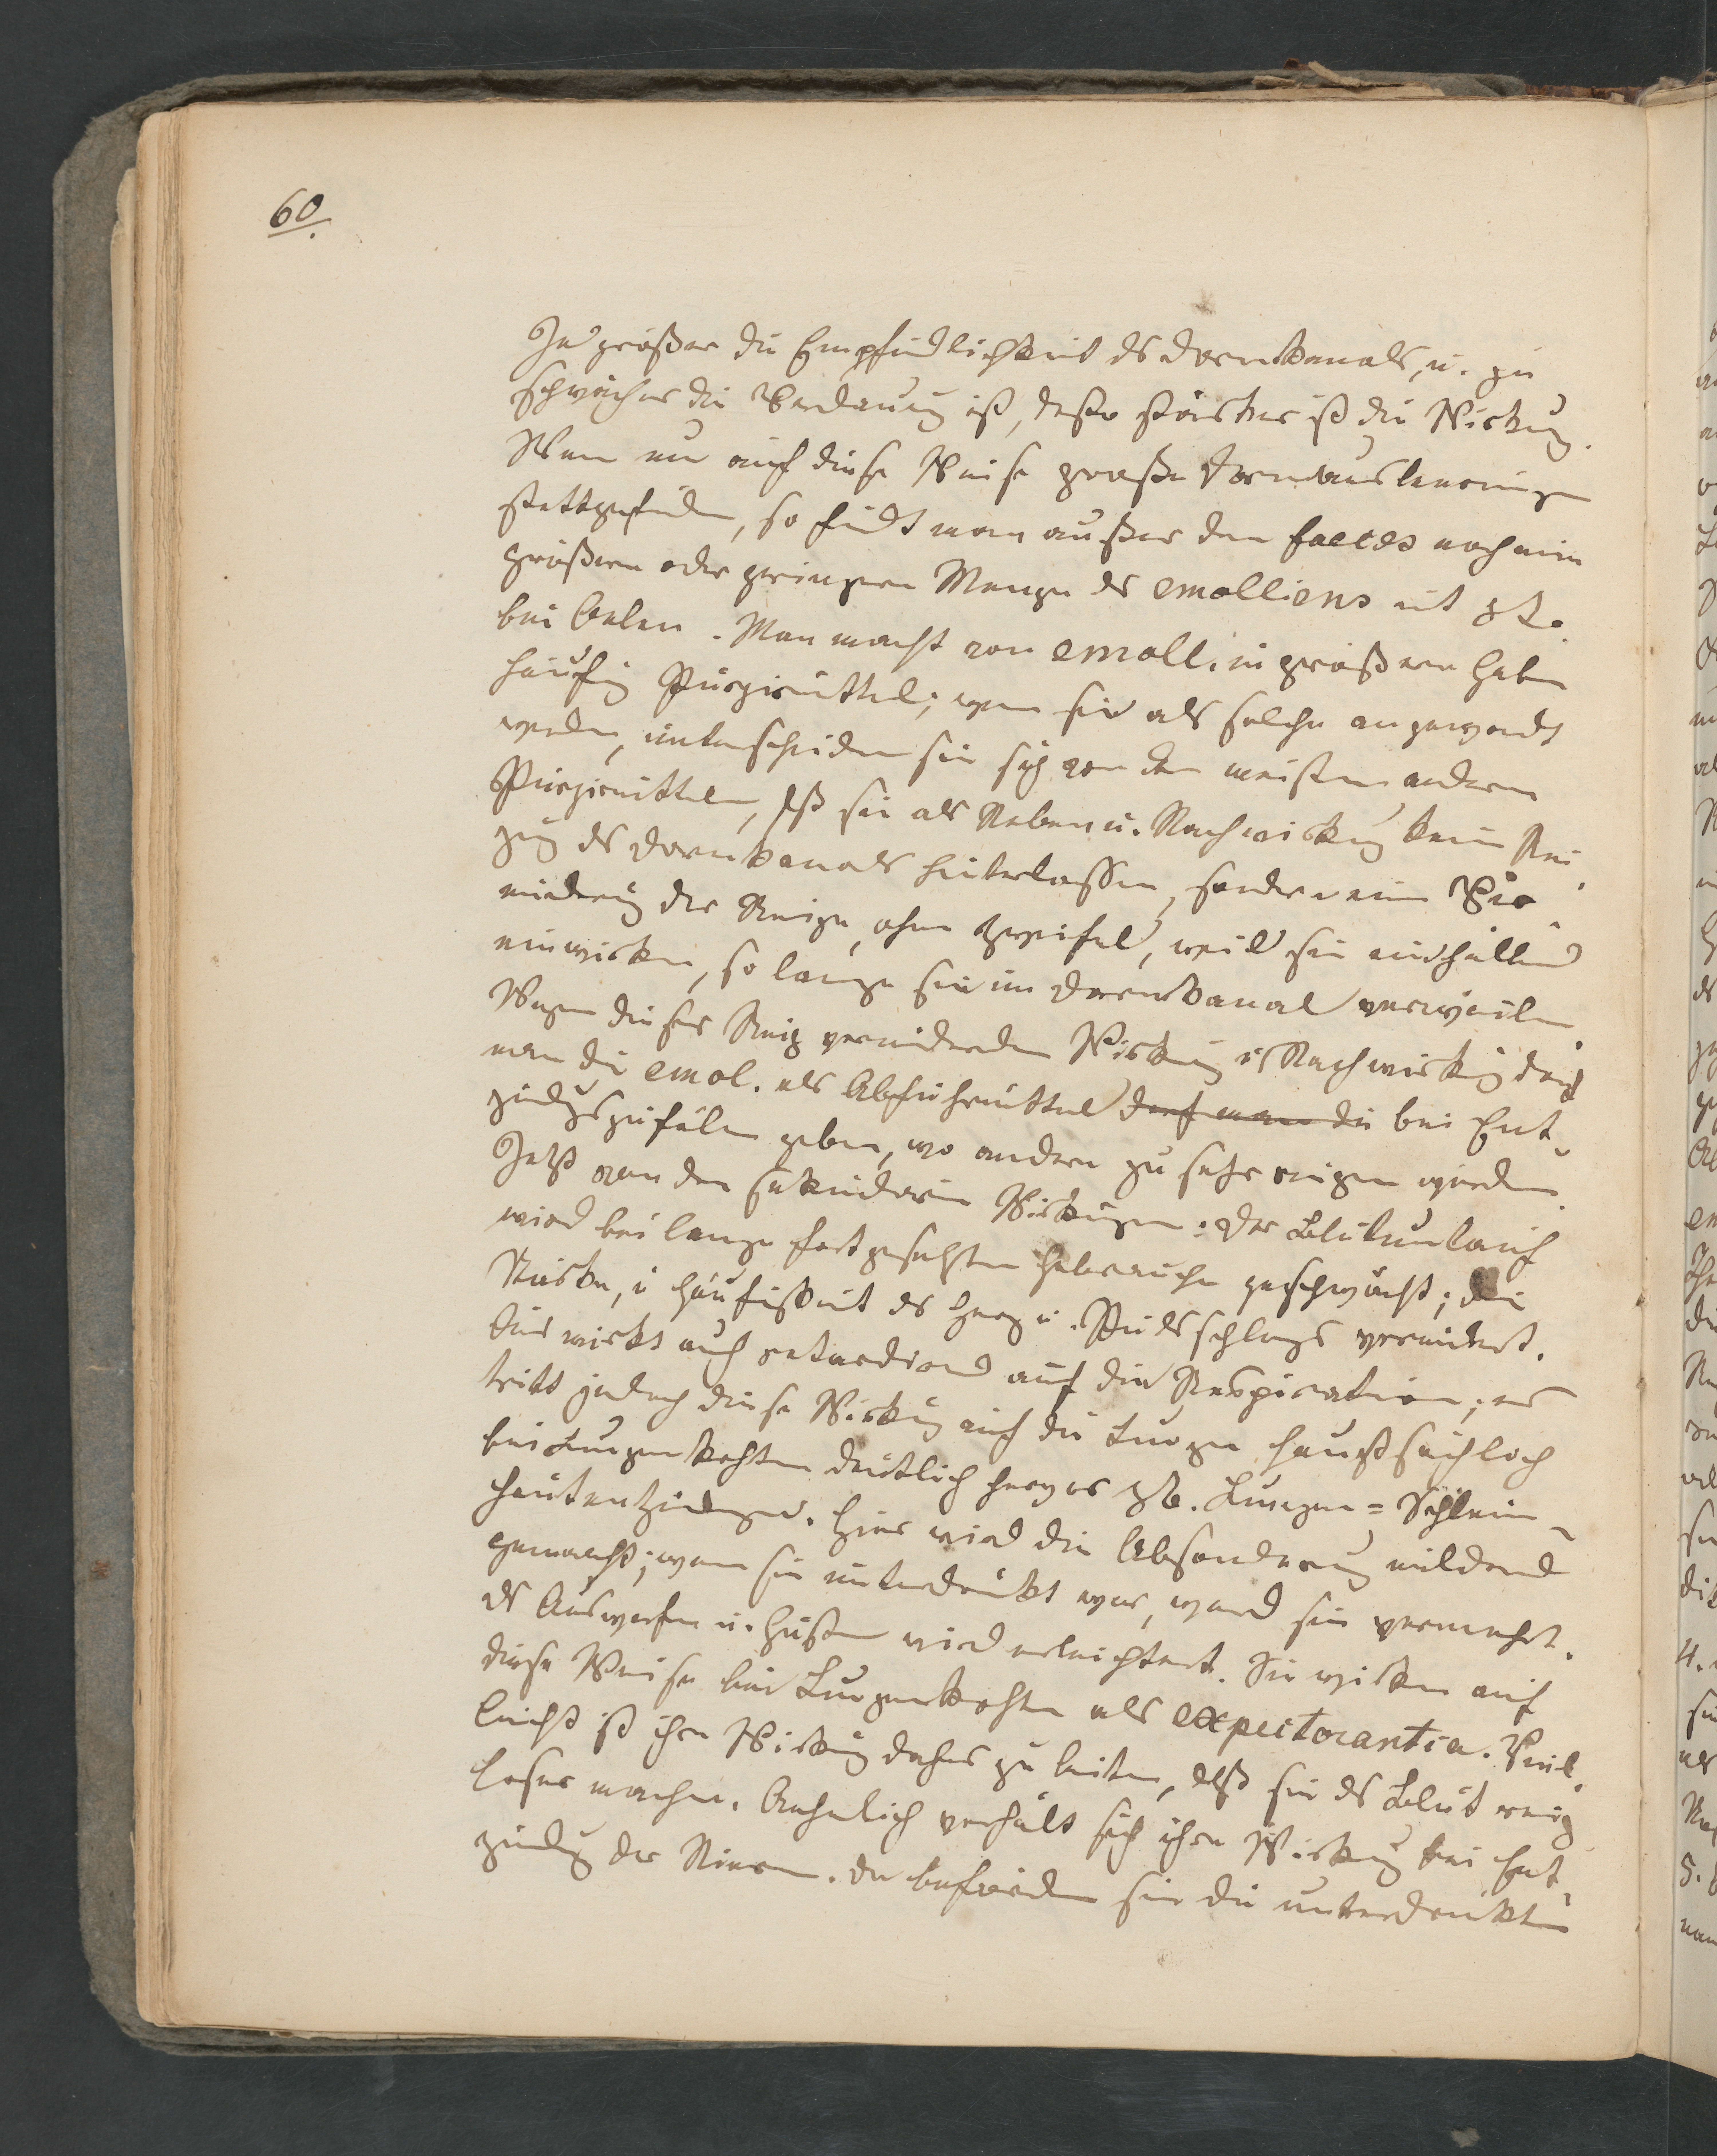 60.
Je größer die Empfindlichkeit ds Darmkanals, u. je
schwächer die Verdauung ist, desto stärker ist die Wirkung.
Wenn nu auf diese Weise große Darmausleerungen
stattgefunden, so findt man außer den faeces noch eine
größere oder geringere Menge ds emolliens mit
bei Oelen. Man macht von emoll. in größeren Gaben
häufig Purgirmittel; wenn sie als solche angewandt
werden, unterscheiden sie sich von den meisten andern
Purgirmitteln, dß sie als Neben u. Nachwirkung keine Rei-
zug ds Darmkanals hinterlassen, sondern eine Ver-
mindrug der Reize, ohne Zweifel, weil sie einhüllend
einwirken, so lange sie im Darmkanal verweilen.
Wegen dieser Reiz vermindernden Wirkug u Nachwirkug darf
man die emol. als Abführmittel darf man die bei Ent-
zündgszufällen geben, wo andere zu sehr reizen würden.
Jetzt von den sekundären Wirkugen: Der Blutumlauf
wird bei lange fortgesetztem Gebrauche geschwächt; die
Stärke, u Häufigkeit ds Herz u. Pulsschlags vermindert.
Dies wirkt auch retardirend auf die Respiration; es
tritt jedoch diese Wirkug auf die Lungen hauptsächlich
bei Lungenkrkhten deutlich hervor zB. Lungen-Schleim-
hautentzündgen. Hier wird die Absonderug mildernd
gemacht; wenn sie unterdrükt war, ward sie vermehrt.
ds Auswerfen u. Husten wird erleichtert. Sie wirken auf
diese Weise bei Lungenkrkhten als expectorantia. Viel-
leicht ist ihre Wirkug daher zu leiten, dß sie ds Blut reiz-
loser machen. Aehnlich verhält sich ihre Wirkug bei Ent-
zündg der Nieren. Da befördern sie die unterdrükte